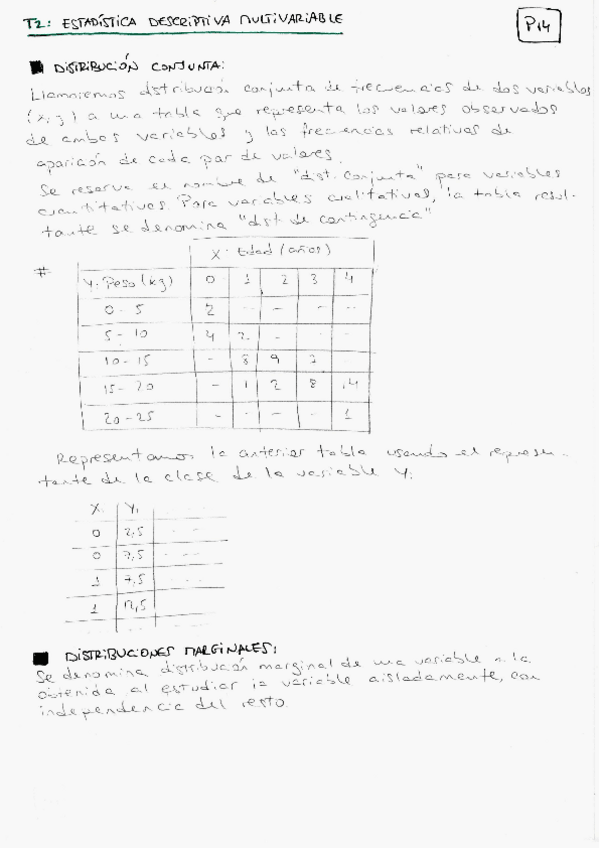 T2: ESTADÍSTICA DESCRIPTIVA MULTIVARIABLE
P14
DISTRIBUCIÓN CONJUNTA:
Llamaremos distribución conjunta de frecuencias de dos variables
(x, y) a una tabla que representa los valores observados
de ambos variables y las frecuencias relativas de
aparición de cada par de valores.
Se reserva el nombre de "dist. conjunta" para variables
cuantitativas. Para variables cualitativas, la tabla resul-
tante se denomina "dist de contingencia"
X: Edad (años)
# Y: Peso (kg) 0 1 2 3 4
0 - 5 2 - - - -
5 - 10 4 2 - - -
10 - 15 - 8 9 -
15 - 20 - 1 2 8 14
20 - 25 - - - - 1
Representamos la anterior tabla usando el represen-
tante de la clase de la variable Y:
Xi Yi
0 2,5
0 7,5
1 7,5
1 12,5
DISTRIBUCIONES MARGINALES:
Se denomina distribución marginal de una variable a la
obtenida al estudiar la variable aisladamente, con
independencia del resto